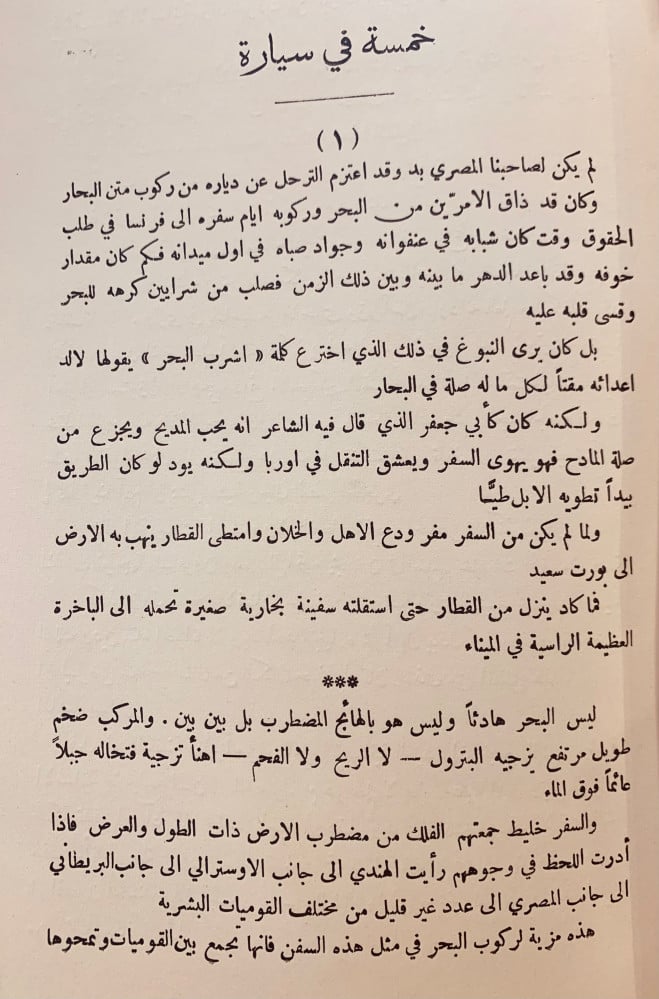 خمسة في سيارة
(١)
لم يكن لصاحبنا المصري بد وقد اعتزم الترحل عن دياره من ركوب متن البحار
وكان قد ذاق الامرّين من البحر وركوبه ايام سفره الى فرنسا في طلب
الحقوق وقت كان شبابه في عنفوانه وجواد صباه في اول ميدانه فكم كان مقدار
خوفه وقد باعد الدهر ما بينه وبين ذلك الزمن فصلب من شرايين كرهه للبحر
وقسى قلبه عليه
بل كان يرى النبوغ في ذلك الذي اخترع كلة « اشرب البحر » يقولها لالد
اعدائه مقتاً لكل ما له صلة في البحار
ولكنه كان كأبي جعفر الذي قال فيه الشاعر انه يحب المديح ويجزع من
صلة المادح فهو يهوى السفر ويعشق التنقل في اوربا ولكنه يود لو كان الطريق
بيداً تطويه الابل طيًّا
ولما لم يكن من السفر مفر ودع الاهل والخلان وامتطى القطار ينهب به الارض
الى بورت سعيد
فما كاد ينزل من القطار حتى استقلته سفينة بخارية صغيرة تحمله الى الباخرة
العظيمة الراسية في الميناء
***
ليس البحر هادئاً وليس هو بالهائج المضطرب بل بين بين . والمركب ضخم
طويل مرتفع يزجيه البترول — لا الريح ولا الفحم — اهنأ تزجية فتخاله جبلاً
عائماً فوق الماء
والسفر خليط جمعتهم الفلك من مضطرب الارض ذات الطول والعرض فاذا
أدرت اللحظ في وجوههم رأيت الهندي الى جانب الاوسترالي الى جانب البريطاني
الى جانب المصري الى عدد غير قليل من مختلف القوميات البشرية
هذه مزية لركوب البحر في مثل هذه السفن فانها تجمع بين القوميات وتمحوها